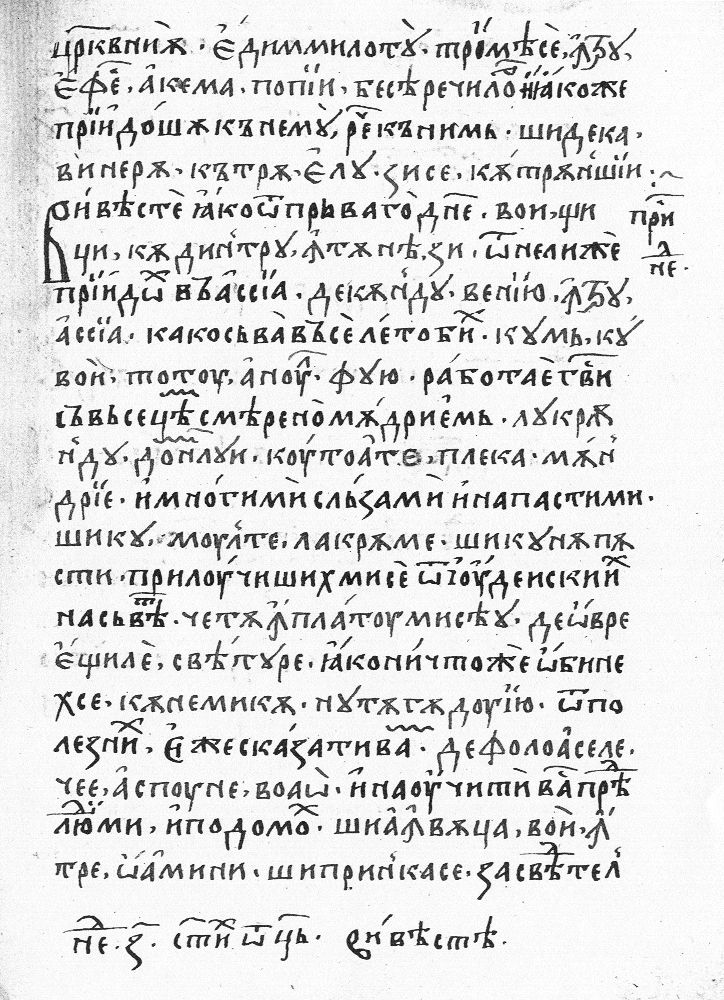 црⷪ҇квниѧ · є҆димилотꙋ · трїимѣсѐ, ꙟ҆тꙋ,
є҆фⷭ҇е, а҆кема, попїи, бесѣречилѡⷤ ꙗ҆коже
прїидо́шѧ къ немꙋ̀, реⷱ҇ къ нимь · шидека,
винерѧ, кътрѧ, є҆лꙋ · зисе, кѫтрѫншїи ·
Ви́вѣстѐ ꙗ҆ко ѿ прьваго̀ дн҃е · вои, щи
при
ци, кѫдинтрꙋ, ꙟ҆тѫнѣ, зи · ѿ нелижѐ
не ·
прїидѡⷯ въ а҆ссїа · декѫндꙋ · венїю, ꙟ҆тꙋ,
а҆ссїа · како съ ва̀ въсѐ лѣто биⷯ · кꙋмь, кꙋ
вои, тотоу, а҆ноуⷧ · фꙋю · рабо́таѐ гв҃и
съ вьсецѣ смѣрено̀мѫдриемь · лꙋкрѫ
ндꙋ · до́мнлꙋи · коу тоа҆те, плека · мѫн
дрїе · и҆ мно́гими̇̀ сльзами̇̀ и҆ напастими ·
шикꙋ, моулте, лакрѫме · шикꙋнѫпѫ
сти · прилоу́чишихмисѐ ѿ їоу҆деискиⷯ
насъвѣⷮ · четѫ ꙟ҆плѫтоу мисѣꙋ · деѡ҆вре
є҆щилѐ, свѣтꙋре · ꙗ҆ко ни́чтожѐ ѡ҆бине
хсе, кѫнемикѫ · нꙋтѫгѫдоуїю · ѿ по
лезниⷯ, є҆же сказа́ти ва · дефолоа҆селе ·
чее, а҆споуне, воаѡ̀ · и҆ наоу҆чити̇̀ ва̀ прѣⷣ
лю́ⷣми, и҆ по домоⷯ · шиа҆ꙟ҆вѫца, вои, ꙟ҆
тре, ѡ҆а҆мини · шиприн касе · засвѣⷣтел
не · з҃ · ст҃иⷯ ѿц҃ь · ви́ вѣстѣ ·